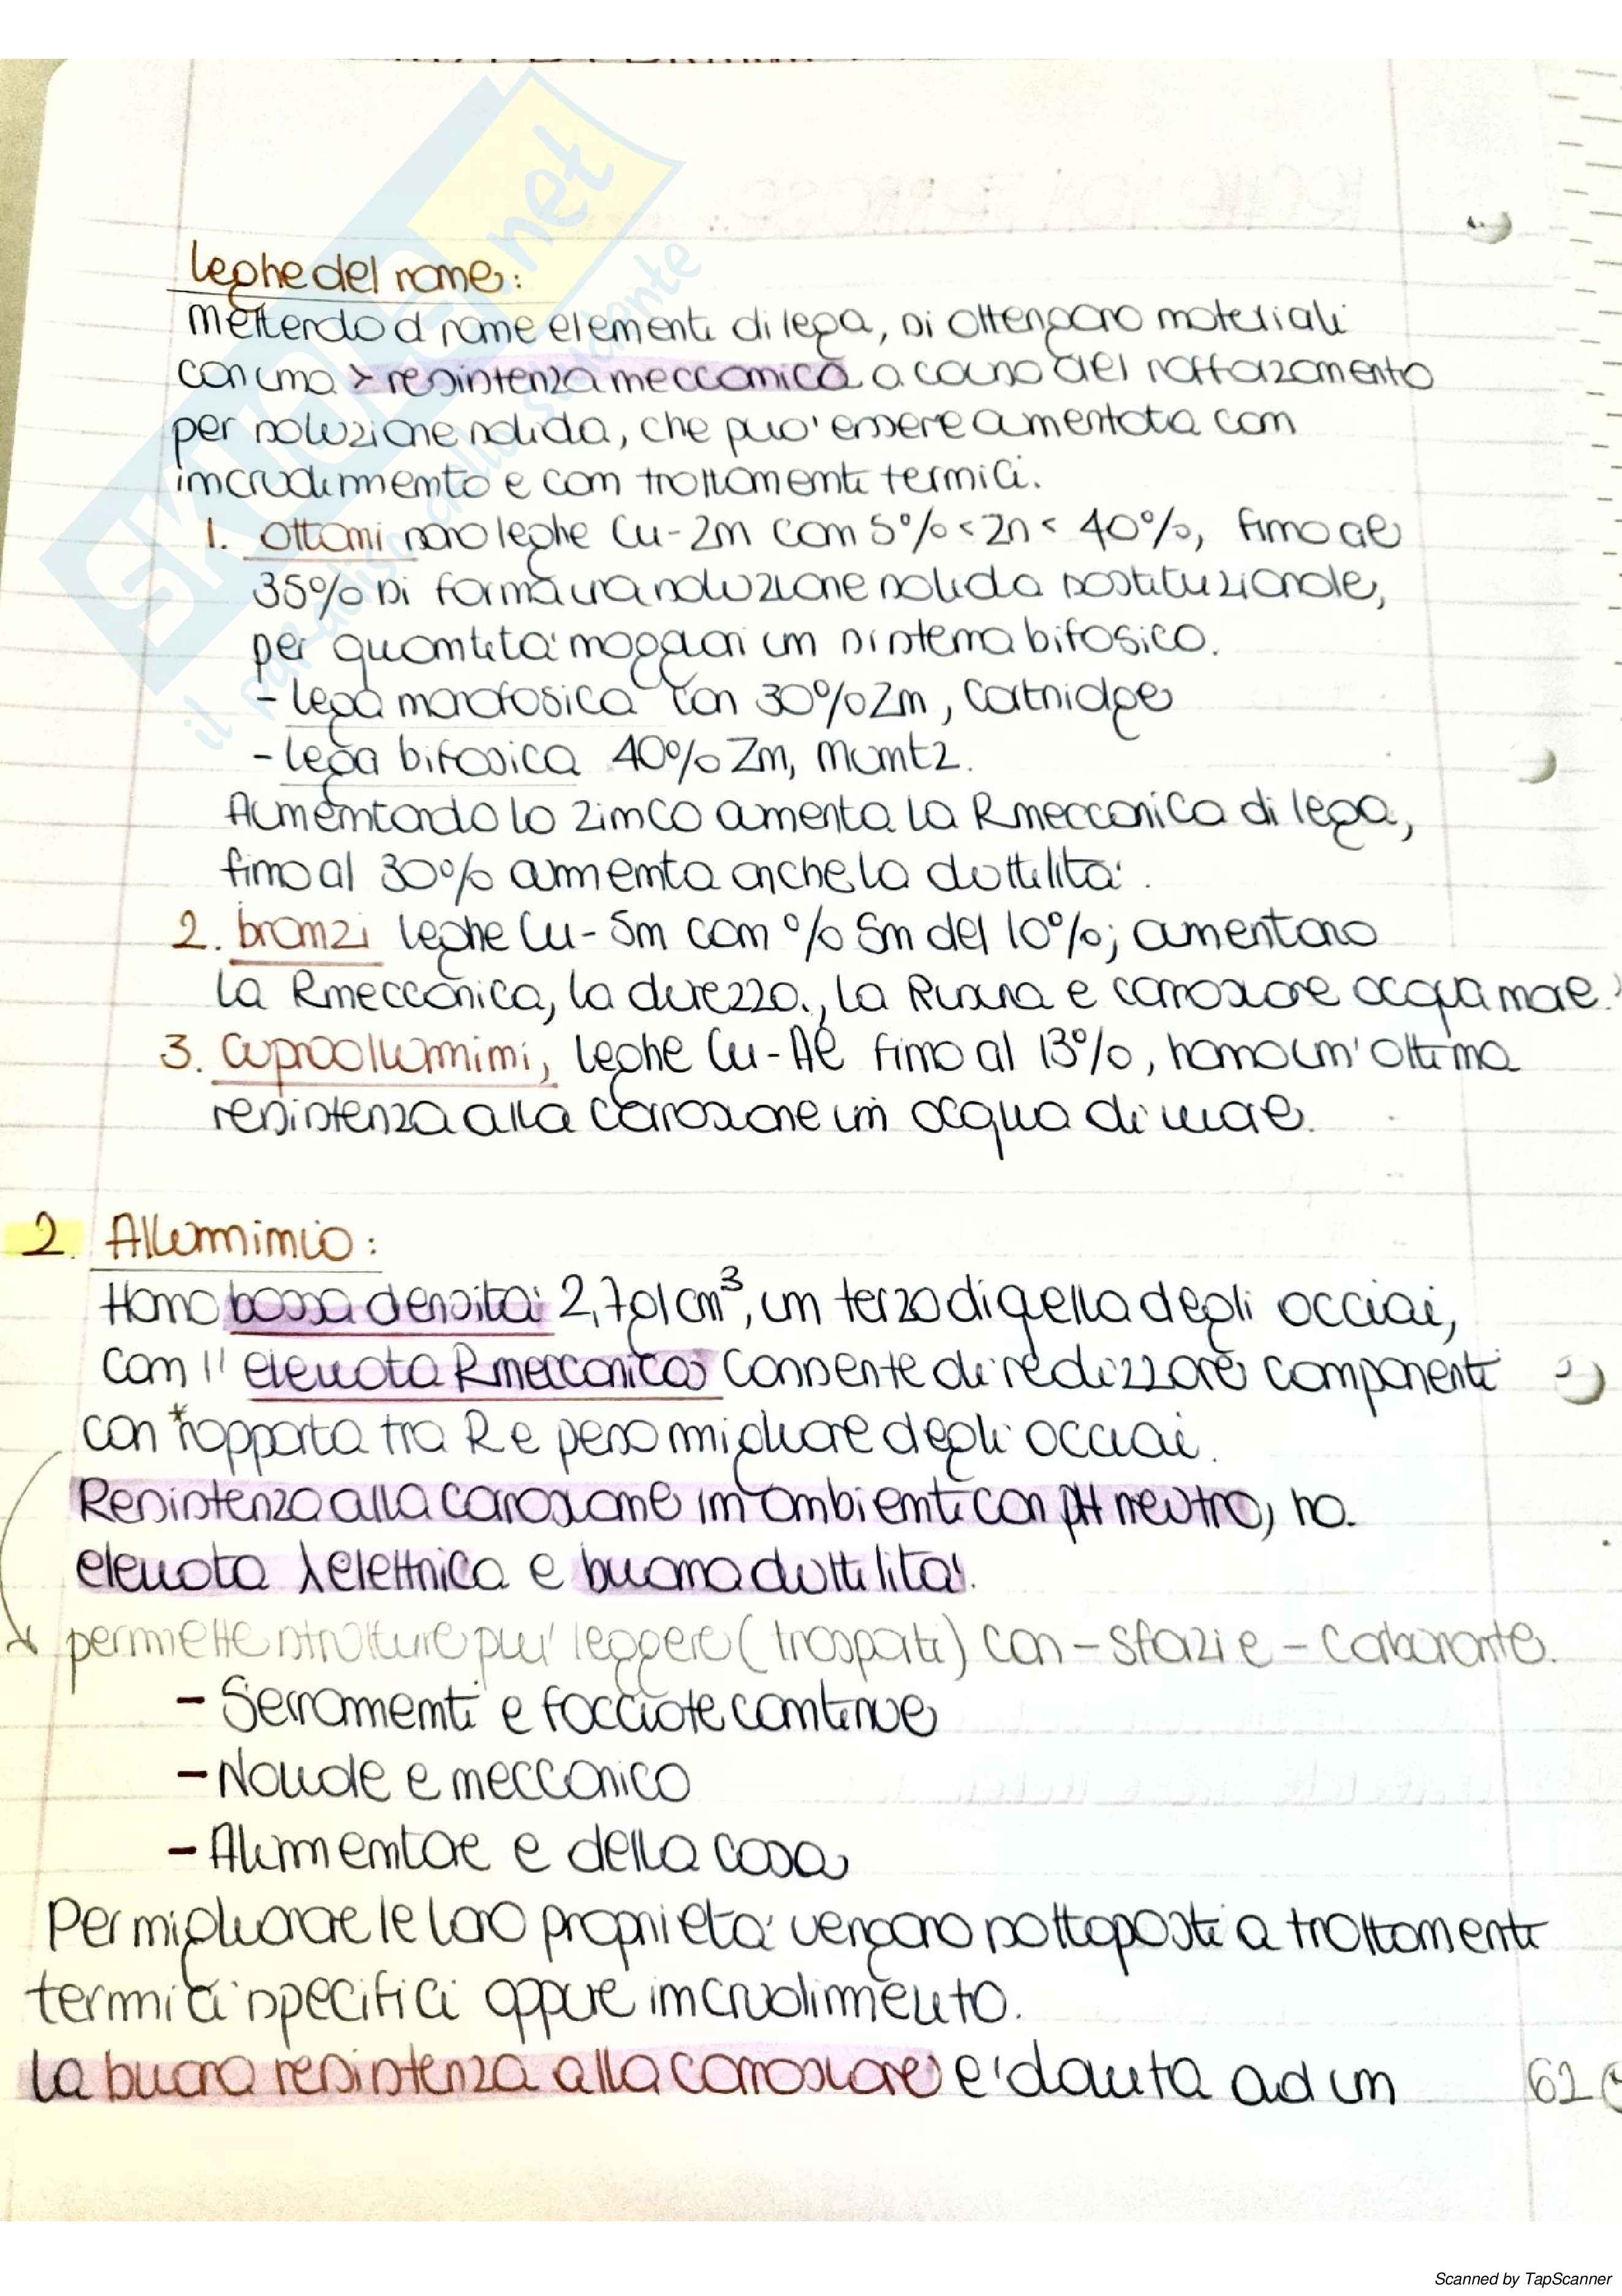 Leghe del rame:
Mettendo al rame elementi di lega, si ottengono materiali
con una > resistenza meccanica a causa del raffozamento
per soluzione solida, che puo' essere aumentata con
incrudimento e con trattamenti termici.
1. Ottoni sono leghe Cu-Zn con 5% < Zn < 40%, fino al
35% si forma una soluzione solida sostituzionale,
per quantita' maggiori un sistema bifasico.
- lega monofasica con 30% Zn, Cartridge
- lega bifasica 40% Zn, Muntz.
Aumentando lo zinco aumenta la Rmeccanica di lega,
fino al 30% aumenta anche la duttilita'.
2. bronzi leghe Cu-Sn con % Sn del 10%; aumentano
la Rmeccanica, la durezza, la Rusura e corrosione acqua mare.
3. Cuproallumini, leghe Cu-Al fino al 13%, hanno un' ottima
resistenza alla corrosione in acqua di mare.
2. Alluminio:
Hanno bassa densita' 2,7g/cm³, un terzo di qella degli acciai,
con l' elevata Rmeccanica consente di realizzare componenti
con *rapporto tra R e peso migliore degli acciai.
Resistenza alla corrosione in ambienti con pH neutro, ha
elevata λ elettrica e buona duttilita'.
permette strutture piu' leggere (trasporti) con - sfazi e - carburante.
- Serramenti e facciate continue
- Navale e meccanico
- Alimentare e della casa
Per migliorare le loro proprieta' vengono sottoposti a trattamenti
termici specifici oppure incrudimento.
La buona resistenza alla corrosione e' dovuta ad un
62
Skuola.net
il paradiso dello studente
Scanned by TapScanner